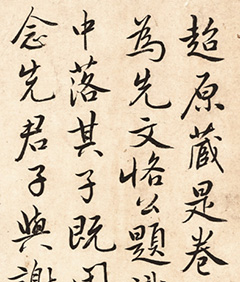 超原藏是卷
為先文恪公題
中落其子既
念先君子與謝